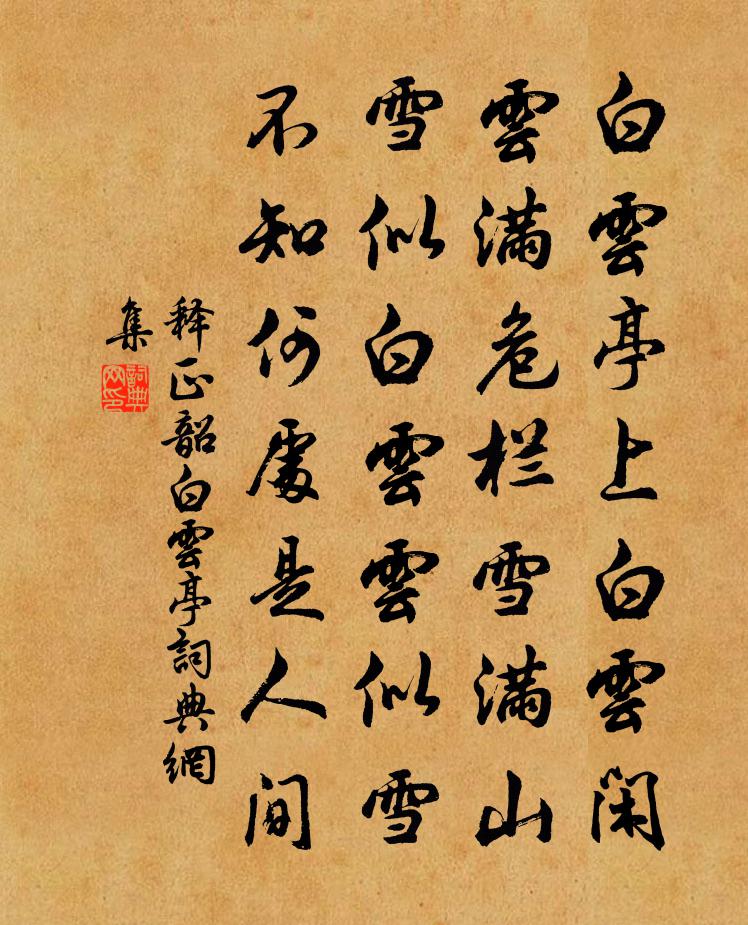 白雲亭上白雲閑
雲滿危栏雪滿山
雪似白雲雲似雪
不知何處是人間
释正韶白雲亭詞典網
集
詞典
网印